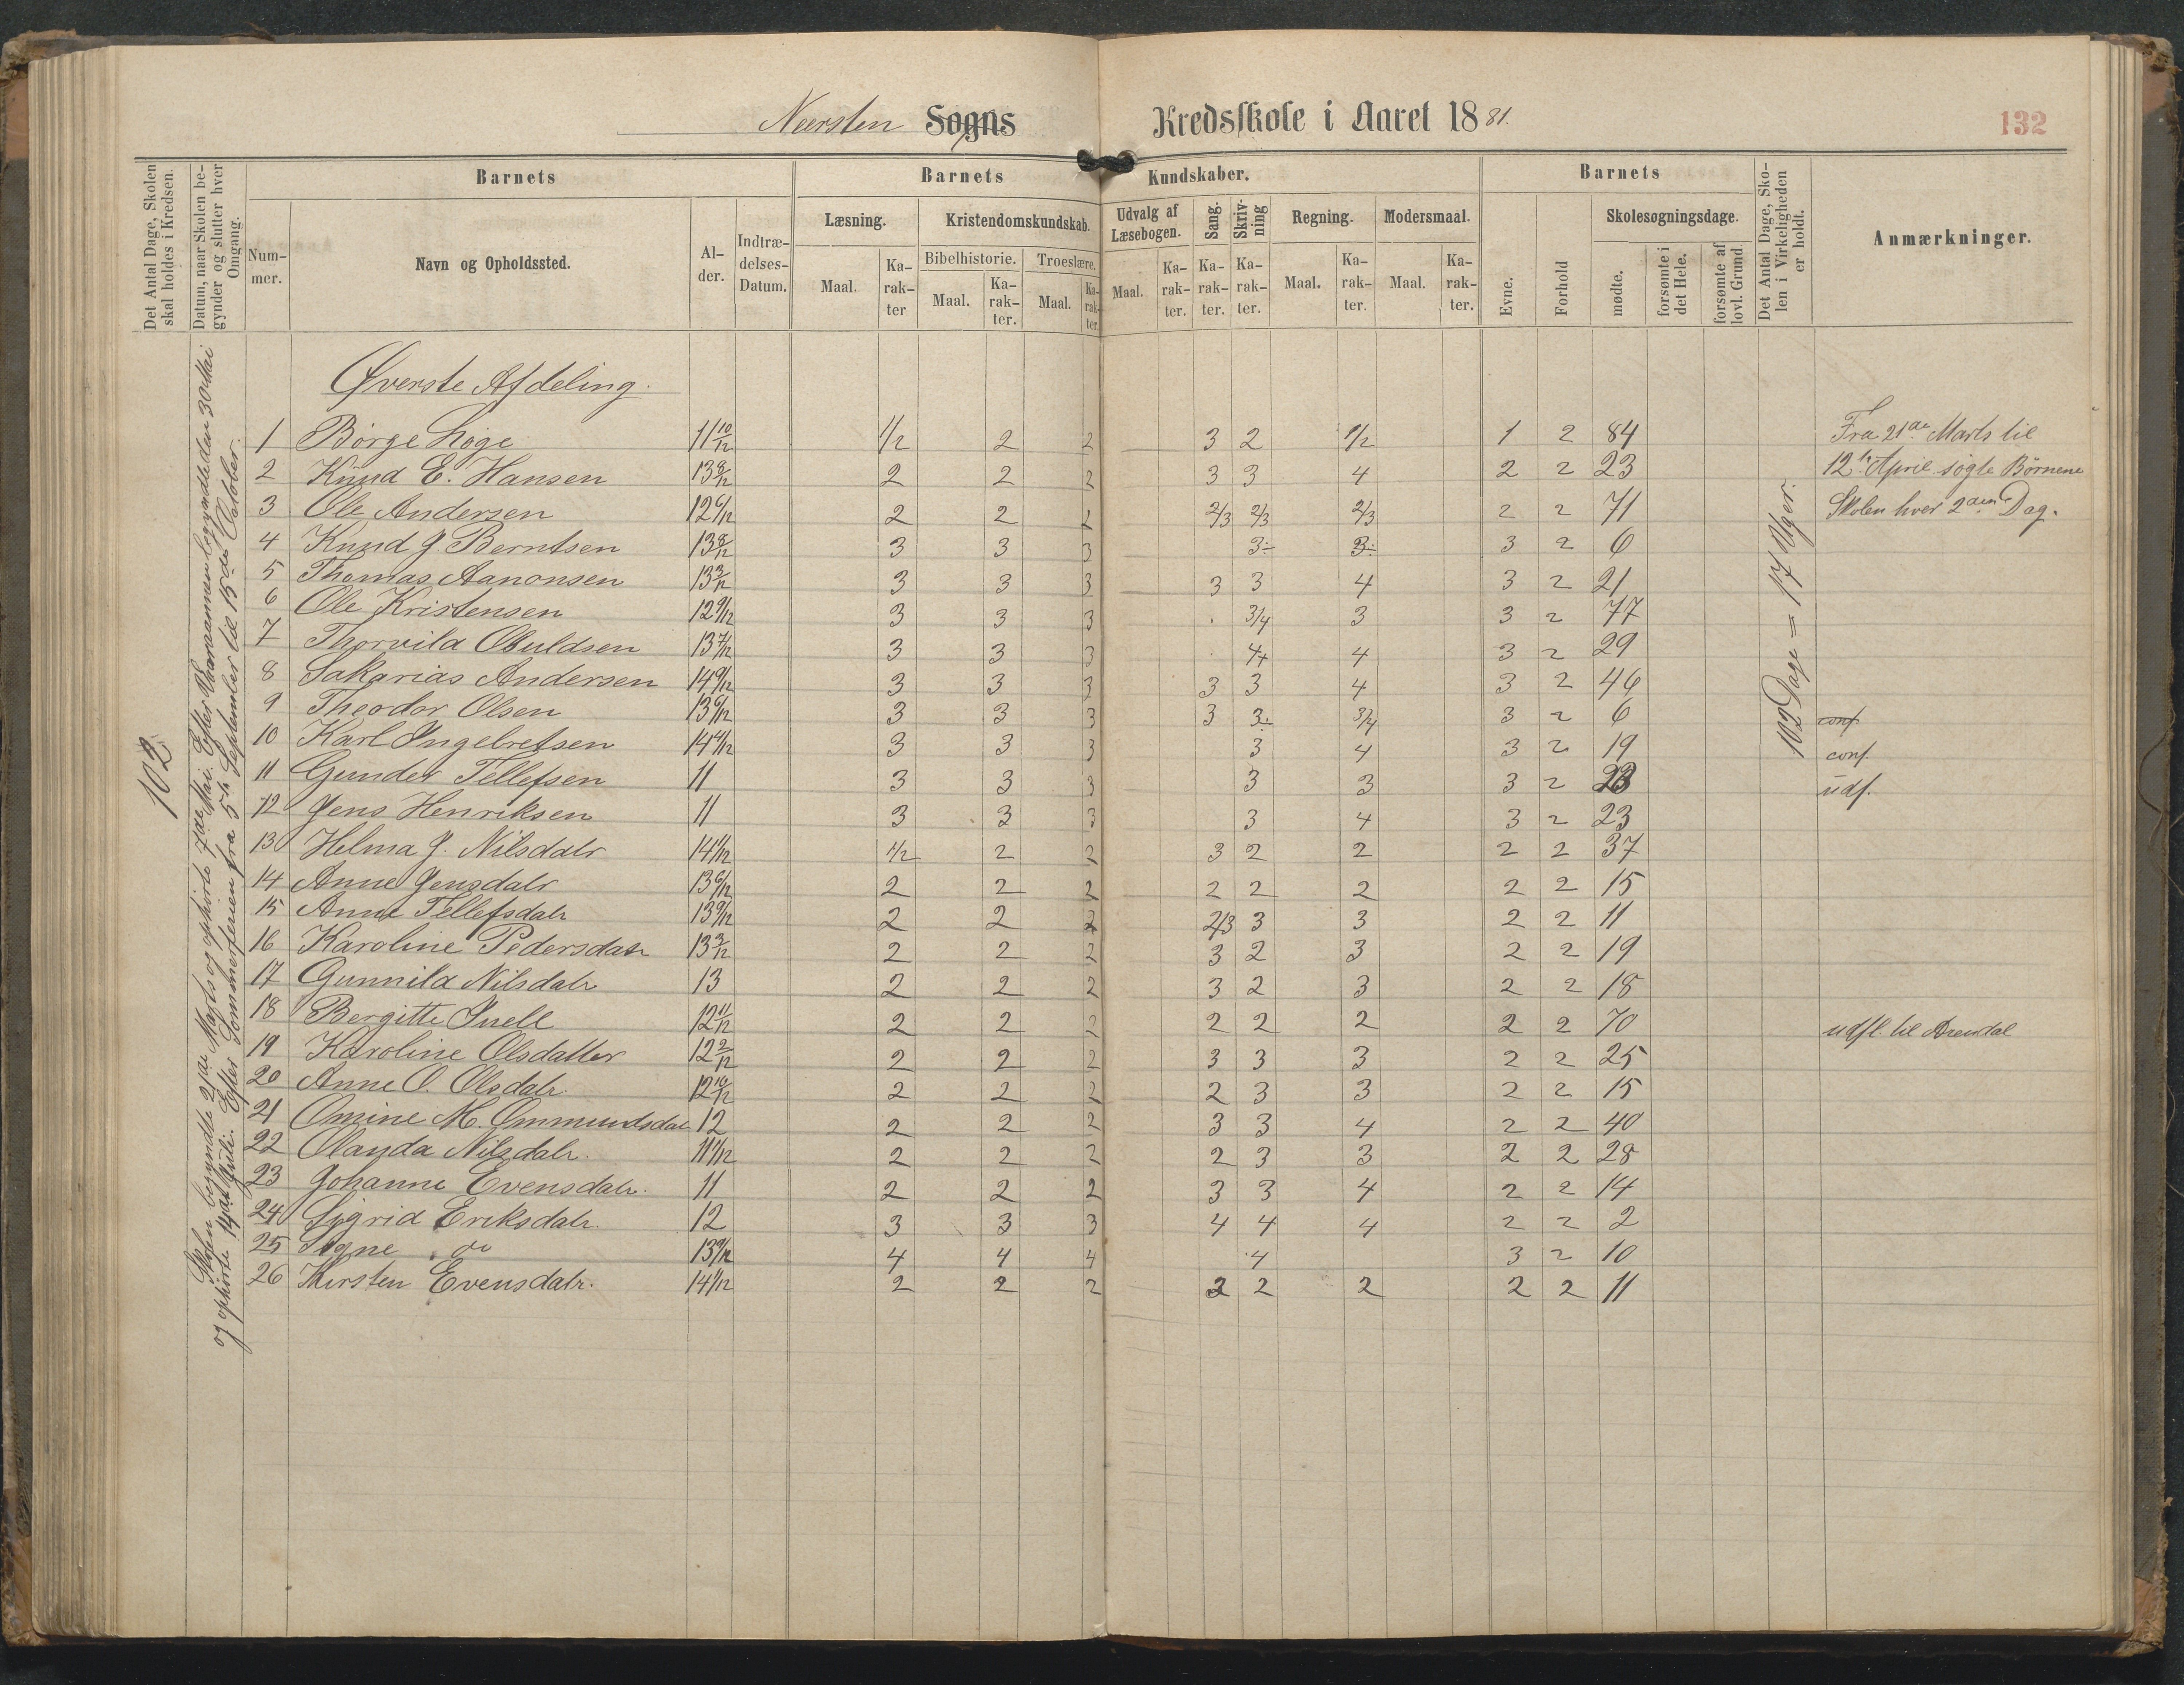 Nærsten Sogns Kredsskole i Aaret 1881.
132
Det Antal Dage, Skolen skal holdes i Kredsen.
Datum, naar Skolen begynder og slutter hver Omgang.
Barnets
Barnets Kundskaber.
Barnets
Det Antal Dage, Skolen i Virkeligheden er holdt.
Anmærkninger.
Nummer.
Navn og Opholdssted.
Alder.
Indtrædelses-Datum.
Læsning.
Kristendomskundskab.
Udvalg af Læsebogen.
Sang.
Skrivning
Regning.
Modersmaal.
Evne.
Forhold
Skolesøgningsdage.
Bibelhistorie.
Troeslære.
Maal.
Karakter
Maal.
Karakter.
Maal.
Karakter.
Maal.
Karakter.
Karakter.
Karakter.
Maal.
Karakter.
Maal.
Karakter.
mødte.
forsømte i det Hele.
forsømte af lovl. Grund.
102
Skolen begyndte 2den Marts og ophørte 7de Mai. Efter Vaaraannen begyndte den 30 Mai
og ophørte 14de Juli. Efter Sommerferien fra 5te September til 15de October.
102 Dage = 17 Uger.
Øverste Afdeling.
1 Børge Høge 11 10/12 1/2 2 2 3 2 1/2 1 2 84 Fra 21de Marts til
2 Knud E. Hansen 13 8/12 2 2 2 3 3 4 2 2 23 12te April søgte Børnene
3 Ole Andersen 12 6/12 2 2 2 2/3 2/3 2/3 2 2 71 Skolen hver 2den Dag.
4 Knud J. Berntsen 13 8/12 3 3 3 3÷ 3÷ 3 2 6
5 Thomas Aanonsen 13 3/12 3 3 3 3 3 4 3 2 21
6 Ole Kristensen 12 9/12 3 3 3 3/4 3 3 2 77
7 Thorvild Obuldsen 13 7/12 3 3 3 4 4 3 2 29
8 Sakarias Andersen 14 9/12 3 3 3 3 3 4 3 2 46
9 Theodor Olsen 13 6/12 3 3 3 3 3÷ 3/4 3 2 6 conf
10 Karl Ingebretsen 14 4/12 3 3 3 3 4 3 2 19 conf.
11 Gunder Tellefsen 11 3 3 3 3 3 3 2 23 udf.
12 Jens Henriksen 11 3 3 3 3 4 3 2 23
13 Helma J. Nilsdatr 14 1/12 1/2 2 2 3 2 2 2 2 37
14 Anne Jensdatr 13 6/12 2 2 2 2 2 2 2 2 15
15 Anne Tellefsdatr 13 9/12 2 2 2 2/3 3 3 2 2 11
16 Karoline Pedersdatr 13 3/12 2 2 2 3 2 3 2 2 19
17 Gunnild Nilsdatr 13 2 2 2 3 2 3 2 2 18
18 Bergitte Juell 12 11/12 2 2 2 2 2 2 2 2 70 udfl. til Arendal
19 Karoline Olsdatter 12 2/12 2 2 2 3 3 3 2 2 25
20 Anne O. Olsdatr. 12 10/12 2 2 2 2 3 3 2 2 15
21 Omine M. Ommundsdatr 12 2 2 2 3 3 4 2 2 40
22 Olanda Nilsdatr. 11 1/12 2 2 2 2 3 3 2 2 28
23 Johanne Evensdatr. 11 2 2 2 3 3 4 2 2 14
24 Sigrid Eriksdatr. 12 3 3 3 4 4 4 2 2 2
25 Signe do 13 9/12 4 4 4 4 3 2 10
26 Kirsten Evensdatr. 14 1/12 2 2 2 2 2 2 2 2 11